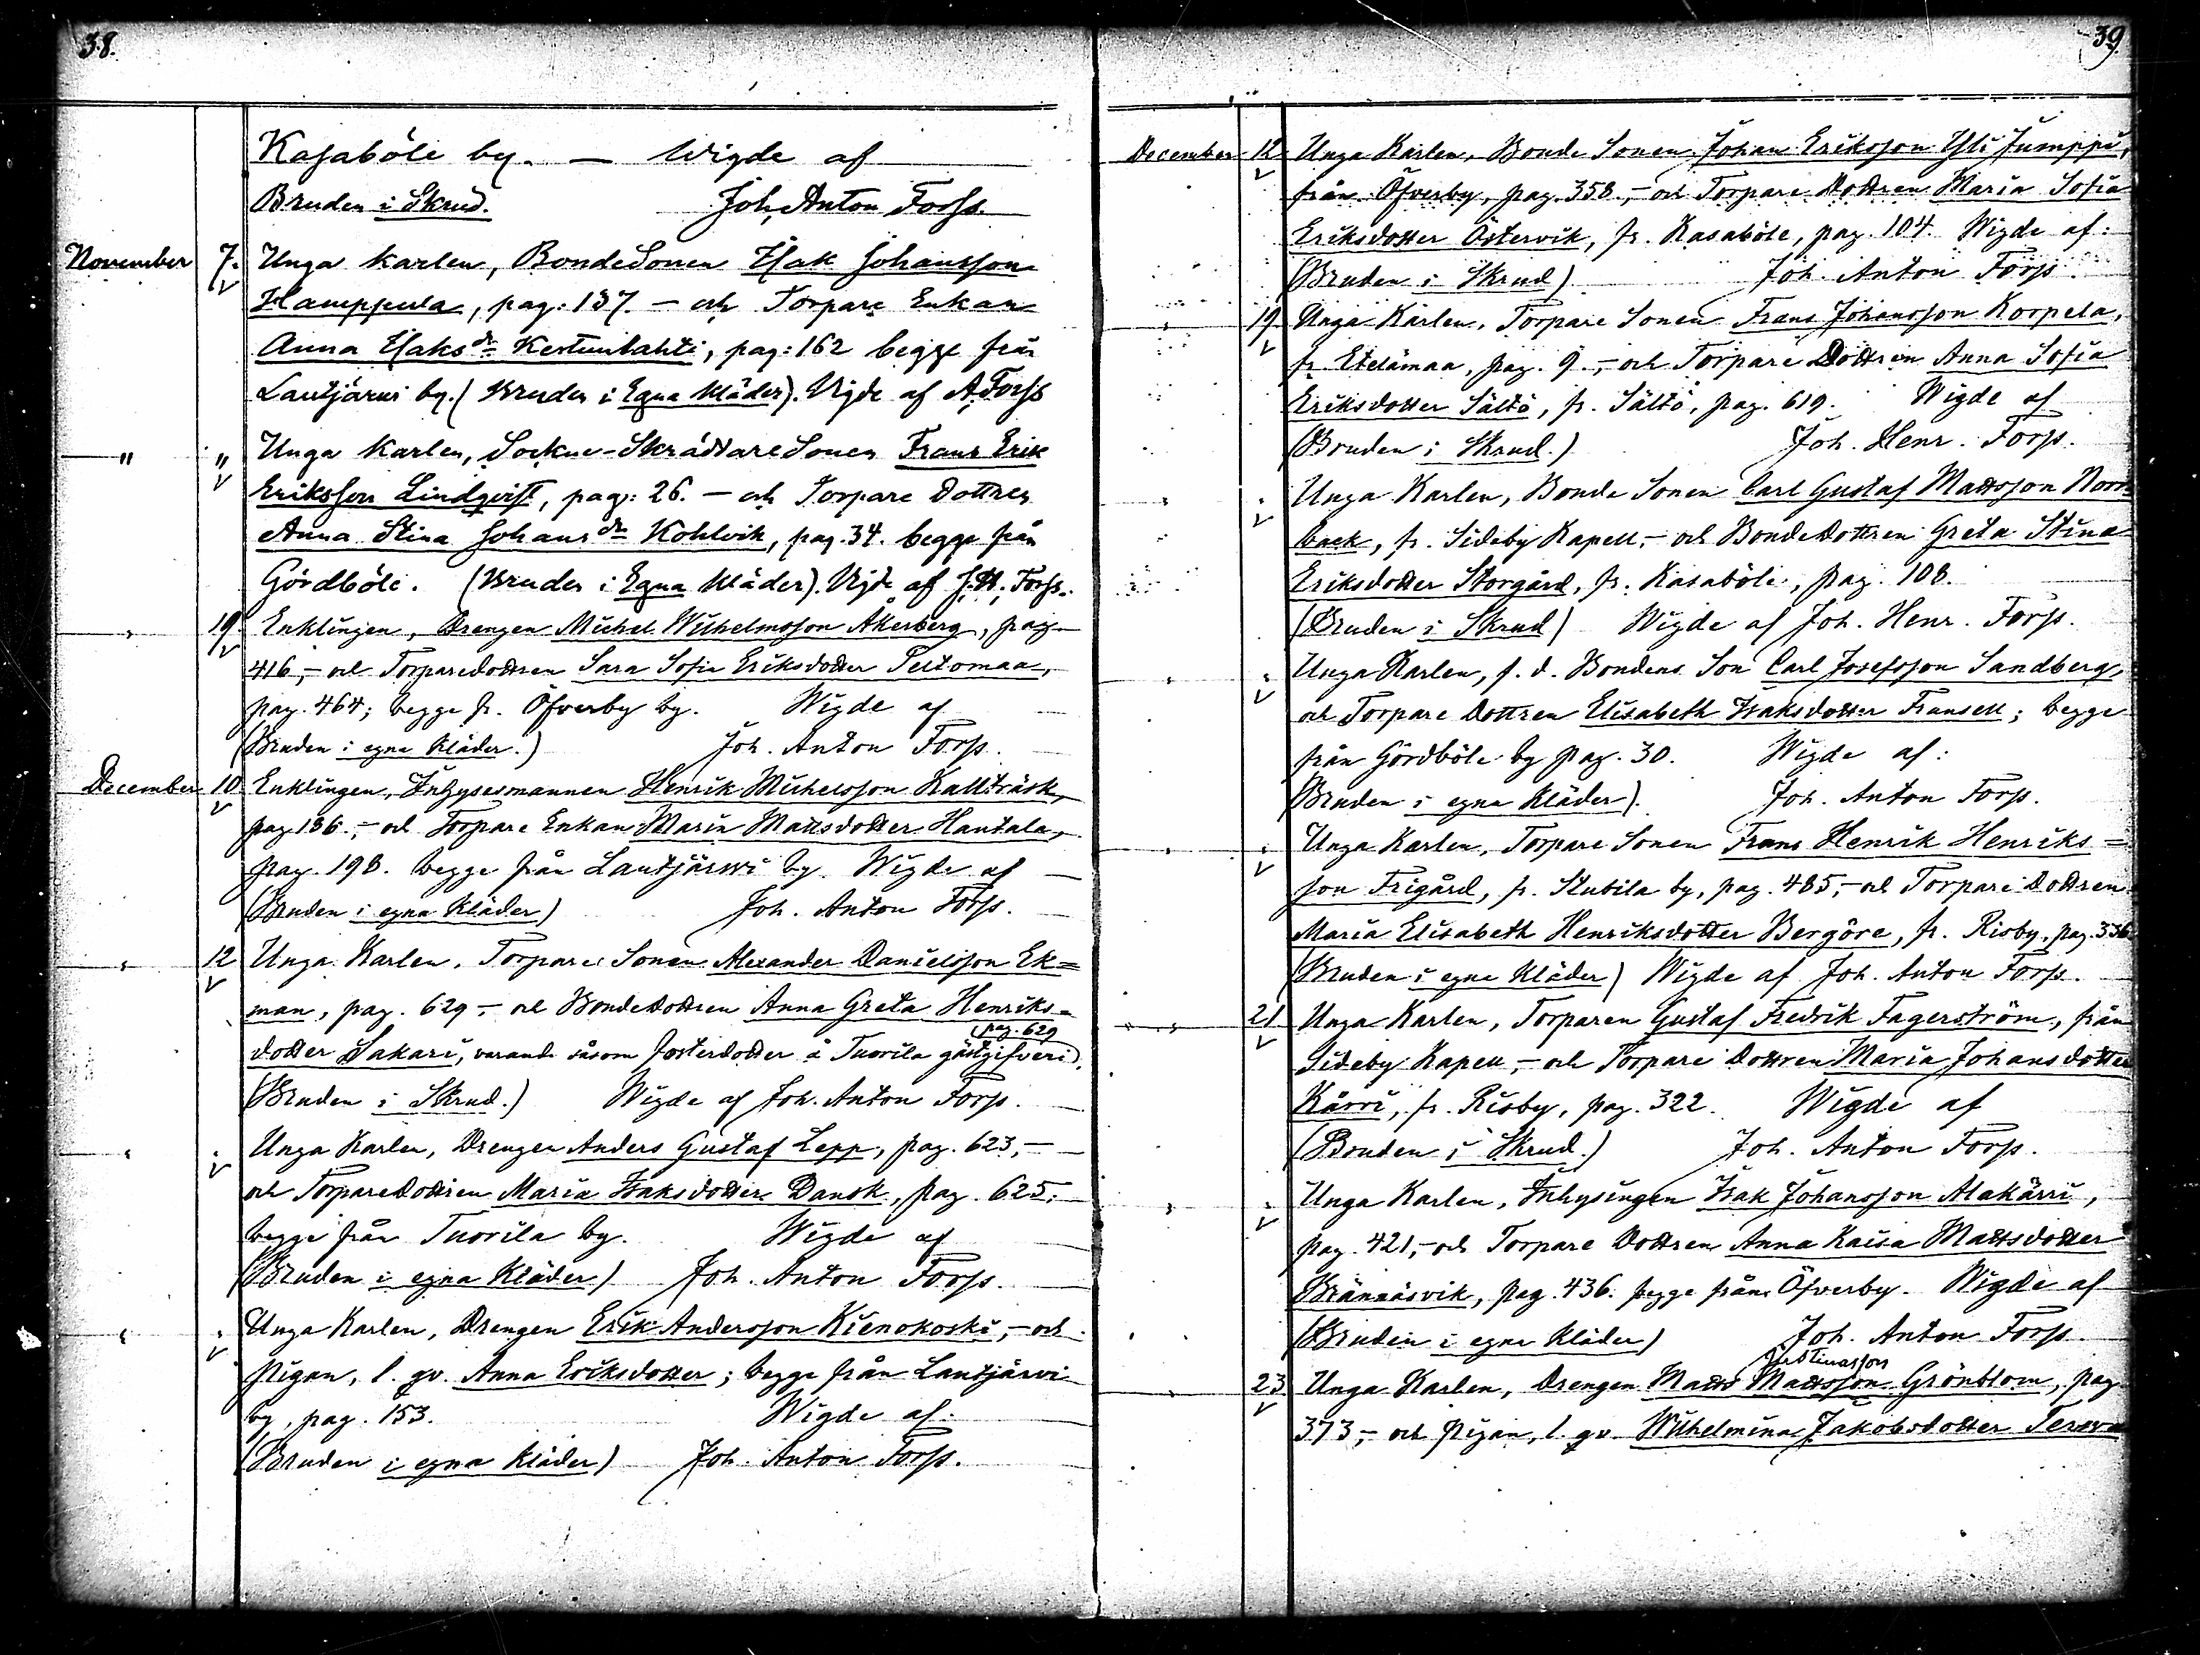 38.
Kasaböle by. — Wigde af
Bruden i Skrud. Joh. Anton Forss.
November 7. Unga karlen, BondeSonen Isak Johansson
Hamppula, pag: 137. — och Torpare Enkan
Anna Isaksdr Kertunlahti, pag: 162 begge från
Lautjärvi by. (Bruden i Egna Kläder). Vigde af A. Forss
" " Unga Karlen, Sockne-SkräddareSonen Frans Erik
Eriksson Lindqvist, pag: 26. — och Torpare Dottren
Anna Stina Johansdr Kohlvik, pag. 34. begge från
Gördböle. (Bruden i Egna Kläder). Vigde af J. H. Forss.
" 19. Enklingen, Drengen Michel Wilhelmsson Åkerberg, pag
416, – och Torparedottren Sara Sofia Eriksdotter Peltomaa,
pag. 464; begge fr. Öfverby by. Wigde af
(Bruden i egna Kläder.) Joh. Anton Forss.
December 10 Enklingen, Inhysesmannen Henrik Michelsson Kallträsk,
pag 186. – och Torpare Enkan Maria Mattsdotter Hautala,
pag. 198. begge från Lautjärwi by. Wigde af
(Bruden i egna Kläder) Joh. Anton Forss.
" 12 Unga Karlen, Torpare Sonen Alexander Danielsson Ek=
man, pag. 629 – och BondeDottren Anna Greta Henriks=
pag. 629
dotter Sakari, varande såsom fosterdotter å Tuorila gästgifveri.
(Bruden i Skrud.) Wigde af Joh. Anton Forss.
" " Unga Karlen, Drengen Anders Gustaf Lepp, pag. 623, –
och TorpareDottren Maria Isaksdotter Dansk, pag. 625;
begge från Tuorila by. Wigde af
(Bruden i egna Kläder) Joh. Anton Forss.
" " Unga Karlen, Drengen Erik Andersson Kienokoski, – och
Pigan, l. gv. Anna Eriksdotter; begge från Lautjärvi
by, pag. 153. Wigde af:
(Bruden i egna Kläder) Joh. Anton Forss.
39.
December 12 Unga Karlen, Bonde Sonen Johan Eriksson Yli Jumppi,
från Öfverby, pag. 358., – och Torpare Dottren Maria Sofia
Eriksdotter Östervik, fr. Kasaböle, pag. 104. Wigde af:
(Bruden i Skrud) Joh. Anton Forss.
" 19. Unga Karlen, Torpare Sonen Frans Johansson Korpela,
fr. Etelämaa, pag. 9., – och Torpare Dottren Anna Sofia
Eriksdotter Sältö, fr. Sältö, pag. 619. Wigde af
(Bruden i Skrud.) Joh. Henr. Forss.
" " Unga Karlen, Bonde Sonen Carl Gustaf Mattsson Norr=
back, fr. Sideby Kapell, – och BondeDottren Greta Stina
Eriksdotter Storgård, fr. Kasaböle, pag. 108.
(Bruden i Skrud) Wigde af Joh. Henr. Forss.
" " Unga Karlen, f. d. Bondens Son Carl Josefsson Sandberg,
och Torpare Dottren Elisabeth Isaksdotter Fransell; begge
från Gördböle by pag. 30. Wigde af:
(Bruden i egna Kläder). Joh. Anton Forss.
" " Unga Karlen, Torpare Sonen Frans Henrik Henriks=
son Frigård, fr. Stubila by, pag. 485, – och Torpare Dottren
Maria Elisabeth Henriksdotter Bergöre, fr. Risby, pag. 336
(Bruden i egna Kläder) Wigde af Joh. Anton Forss.
" " 21. Unga Karlen, Torparen Gustaf Fredrik Fagerström, från
Sideby Kapell, – och Torpare Dottren Maria Johansdotter
Kärri, fr. Risby, pag. 322. Wigde af
(Bruden i Skrud.) Joh. Anton Forss.
" " Unga Karlen, Inhysingen Isak Johansson Alakärri,
pag. 421, – och Torpare Dottren Anna Kaisa Mattsdotter
Brännäsvik, pag. 436. begge från Öfverby. Wigde af
(Bruden i egna Kläder) Joh. Anton Forss.
Justinasson
" 23 Unga Karlen, Drengen Matts Mattsson Grönblom, pag
373, – och Pigan, l. gv. Wilhelmina Jakobsdotter Terva